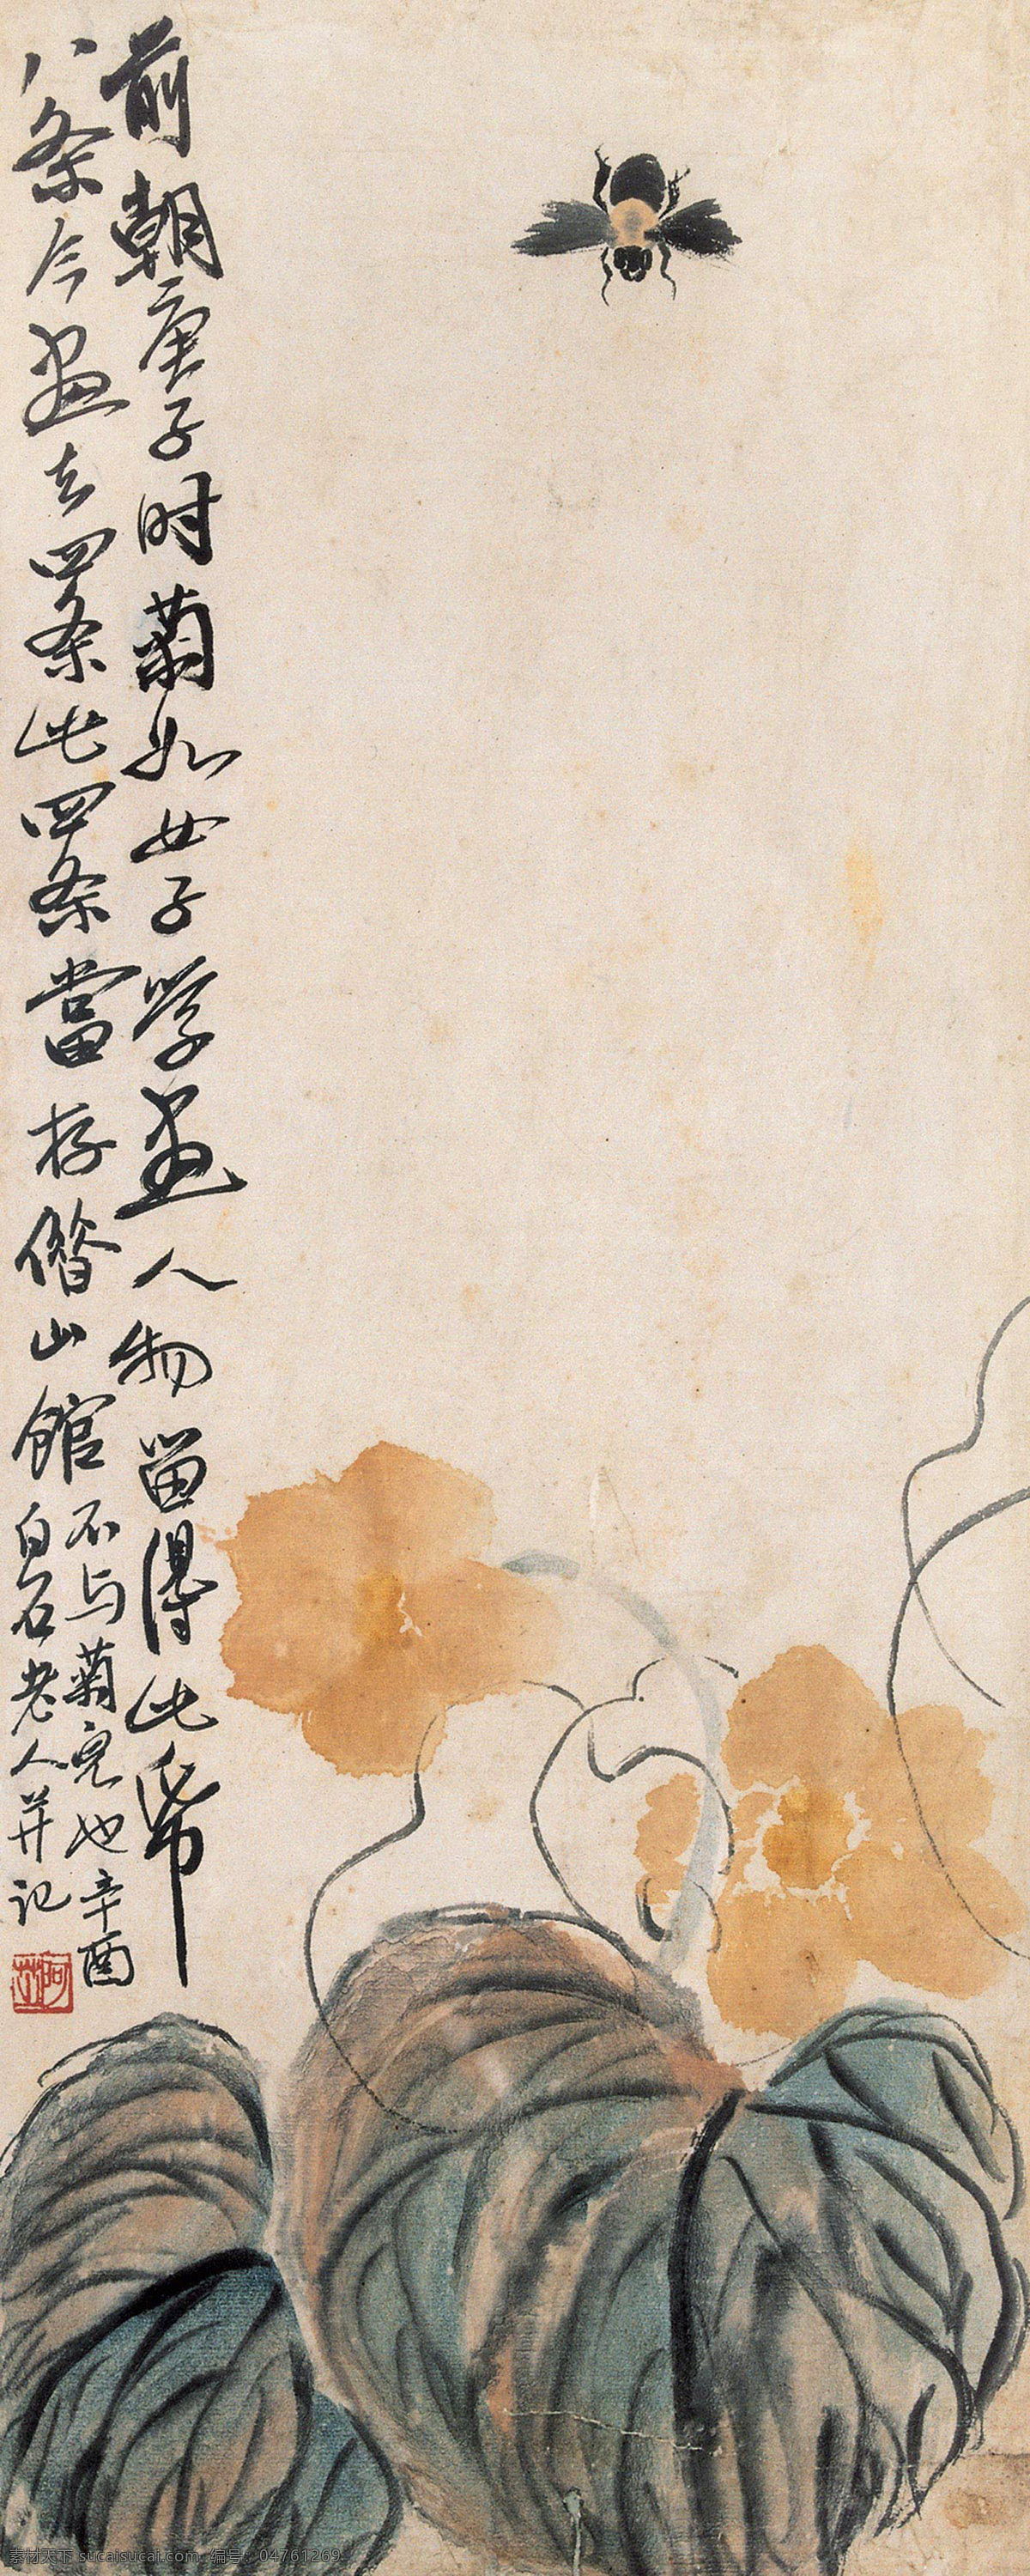 前朝庚子时菊如女子学画人物留得此纸
八条今画去四条此四条當存借山館
不与菊儿也辛酉
白石老人并记
素材天下 sucaisucai.com 编号：04761269